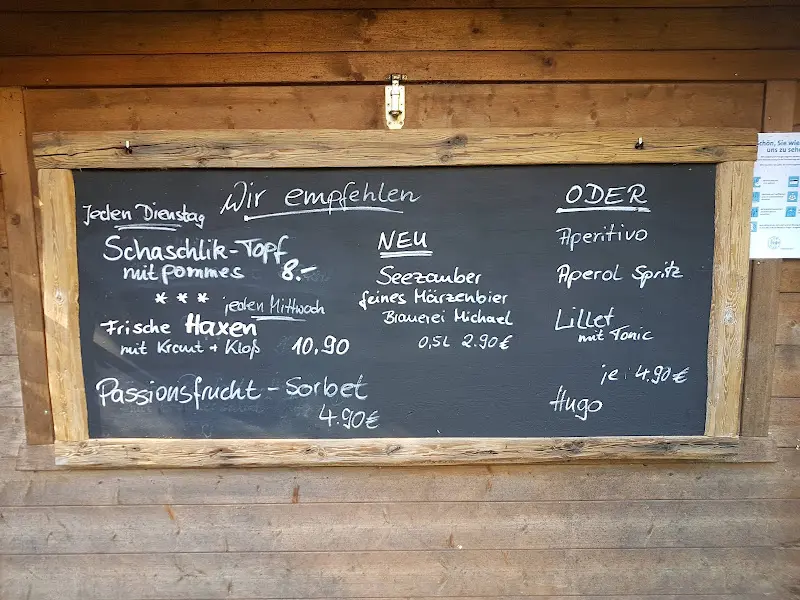 Wir empfehlen
Jeden Dienstag
Schaschlik-Topf
mit pommes 8.-
* * *
jeden Mittwoch
Frische Haxen
mit Kraut + Kloß 10,90
Passionsfrucht - Sorbet
4.90€
NEU
Seezauber
feines Märzenbier
Brauerei Michael
0,5L 2.90€
ODER
Aperitivo
Aperol Spritz
Lillet
mit Tonic
je 4.90€
Hugo
schön, Sie wie
uns zu sehe